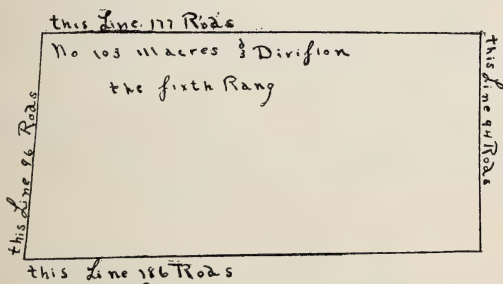 this Line 177 Rods
No 103 111 acres 3d Diviſion
the ſixth Rang
this Line 96 Rods
this Line 94 Rods
this Line 186 Rods